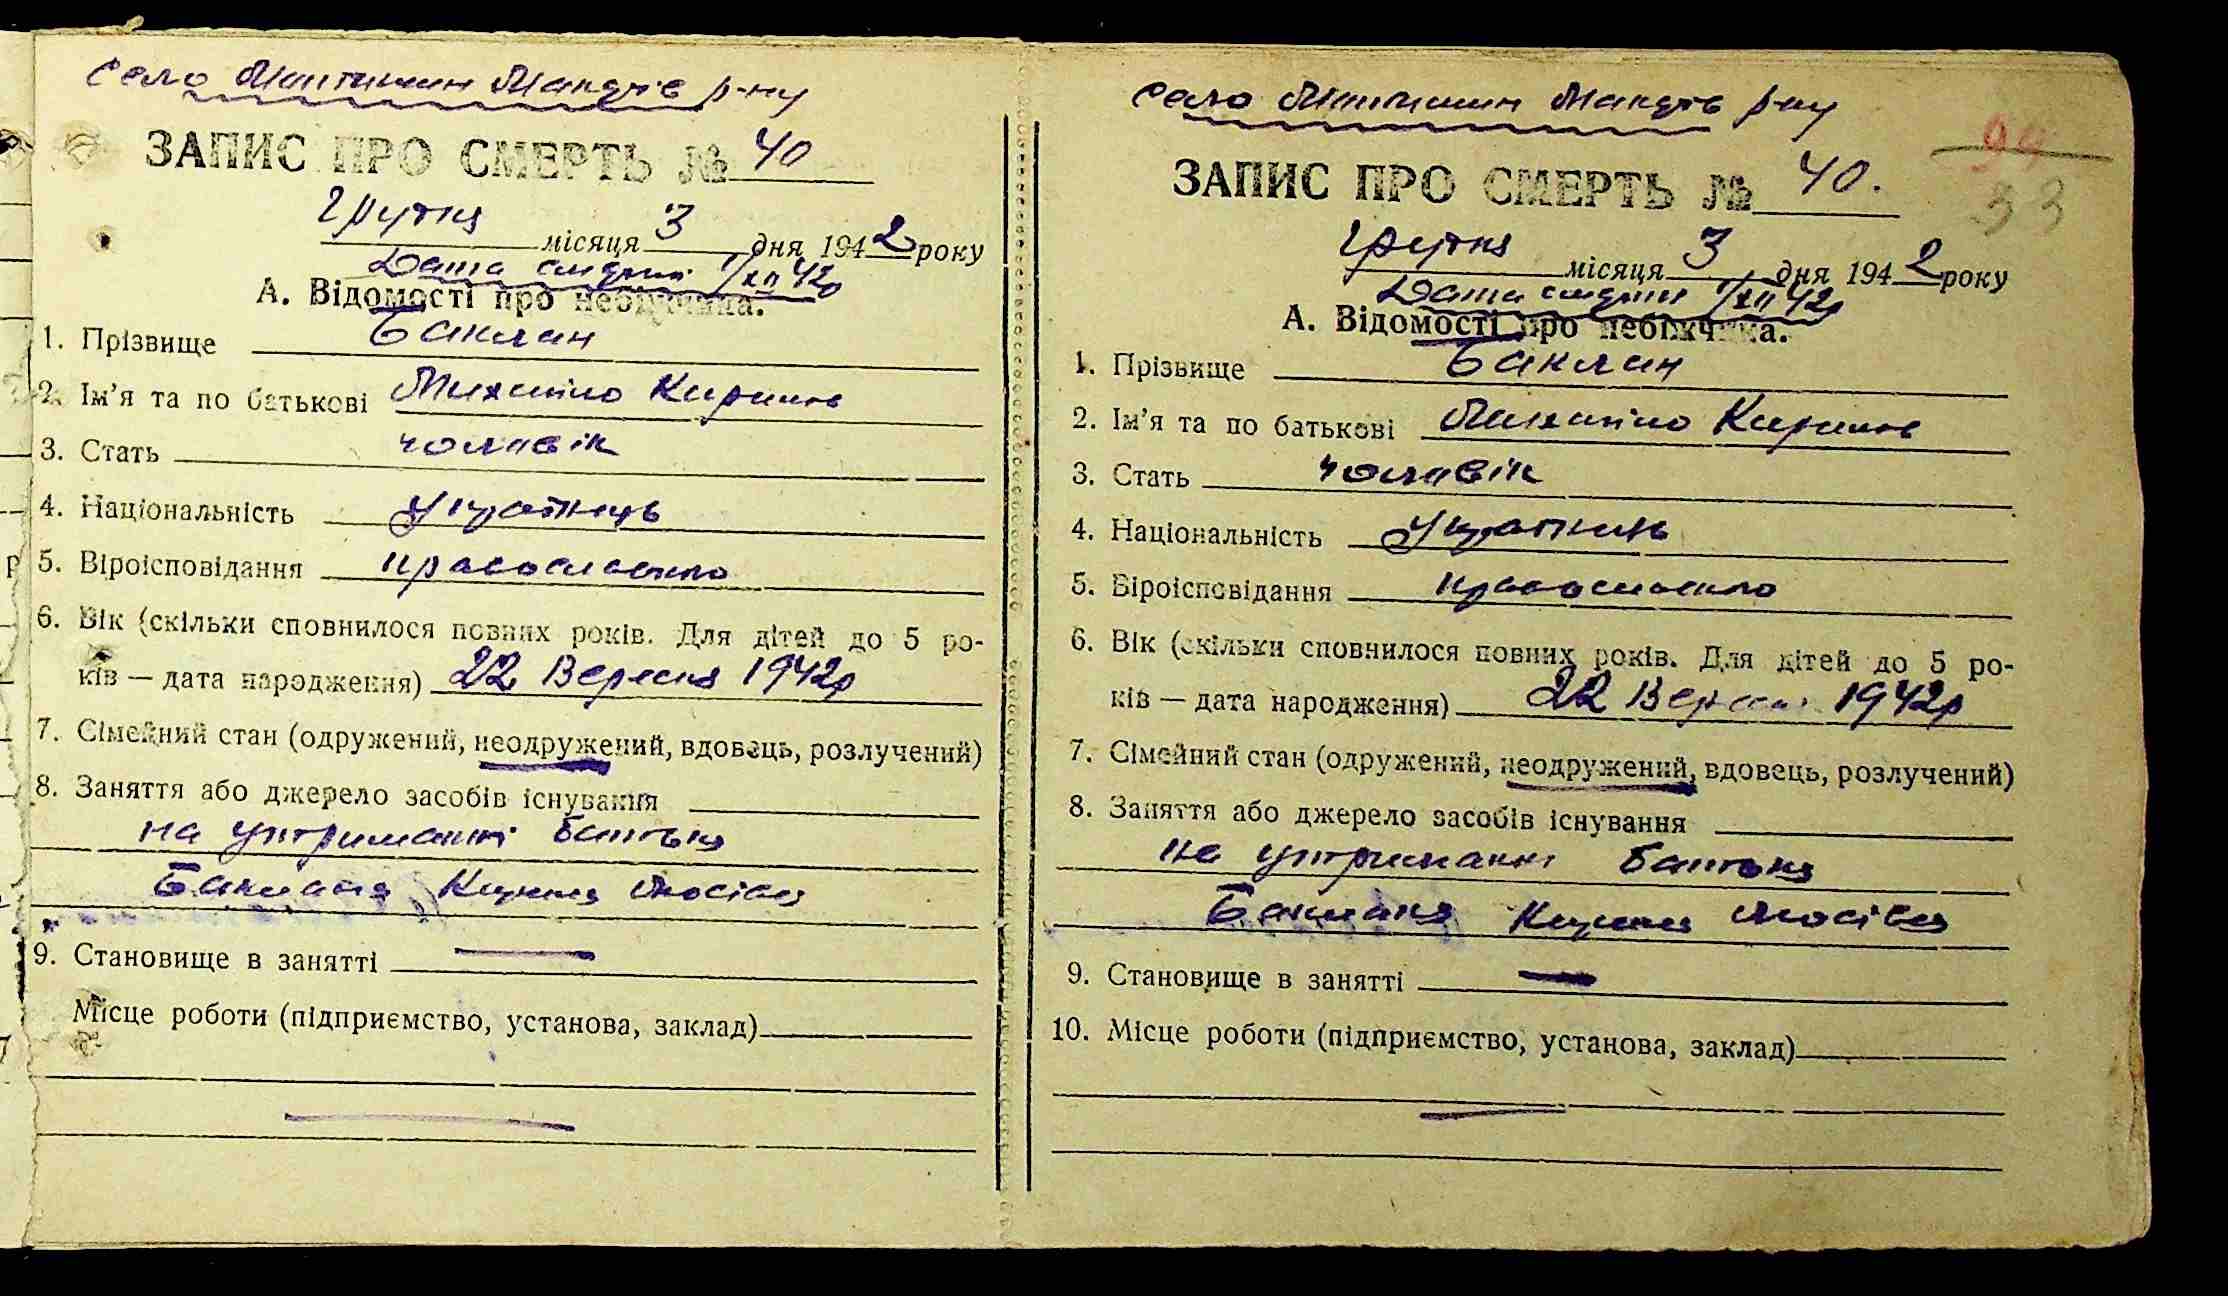 село Мантишин Мандрів р-ну
ЗАПИС ПРО СМЕРТЬ № 40
Грудня місяця 3 дня 1942 року
Дата смерти 1/XII 42р
А. Відомості про небіжчика.
1. Прізвище Баклан
2. Ім'я та по батькові Михайло Кирилов
3. Стать чоловік
4. Національність Українець
5. Віроісповідання православно
6. Вік (скільки сповнилося повних років. Для дітей до 5 ро-
ків — дата народження) 22 Вересня 1942р
7. Сімейний стан (одружений, неодружений, вдовець, розлучений)
8. Заняття або джерело засобів існування
на утриманні батька
Баклана Кирила
9. Становище в занятті —
Місце роботи (підприємство, установа, заклад)
—
село Мантишин Мандрів р-ну
94
33
ЗАПИС ПРО СМЕРТЬ № 40.
Грудня місяця 3 дня 1942 року
Дата смерти 1/XII 42р
А. Відомості про небіжчика.
1. Прізвище Баклан
2. Ім'я та по батькові Михайло Кирилов
3. Стать чоловік
4. Національність Українець
5. Віроісповідання православно
6. Вік (скільки сповнилося повних років. Для дітей до 5 ро-
ків — дата народження) 22 Вересня 1942р
7. Сімейний стан (одружений, неодружений, вдовець, розлучений)
8. Заняття або джерело засобів існування
на утриманні батька
Баклана Кирила
9. Становище в занятті —
10. Місце роботи (підприємство, установа, заклад)
—